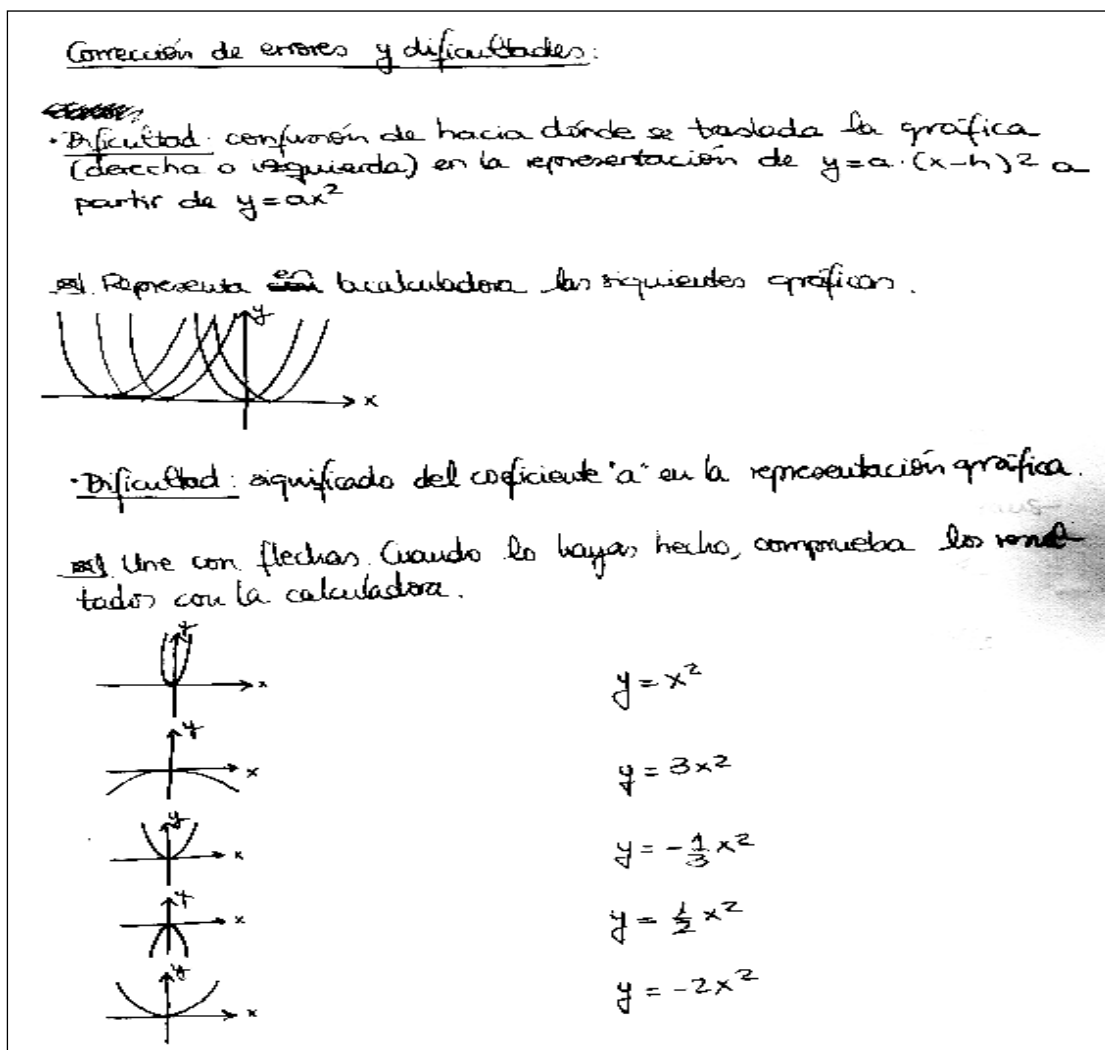 Corrección de errores y dificultades:
· Dificultad: confusión de hacia dónde se traslada la gráfica
(derecha o izquierda) en la representación de y=a·(x-h)² a
partir de y=ax²
Representa en la calculadora las siguientes gráficas.
y
x
· Dificultad: significado del coeficiente "a" en la representación gráfica.
Une con flechas. Cuando lo hayas hecho, comprueba los resul-
tados con la calculadora.
y
x
y = x²
y
x
y = 3x²
y
x
y = -1/3 x²
y
x
y = 1/2 x²
y
x
y = -2x²